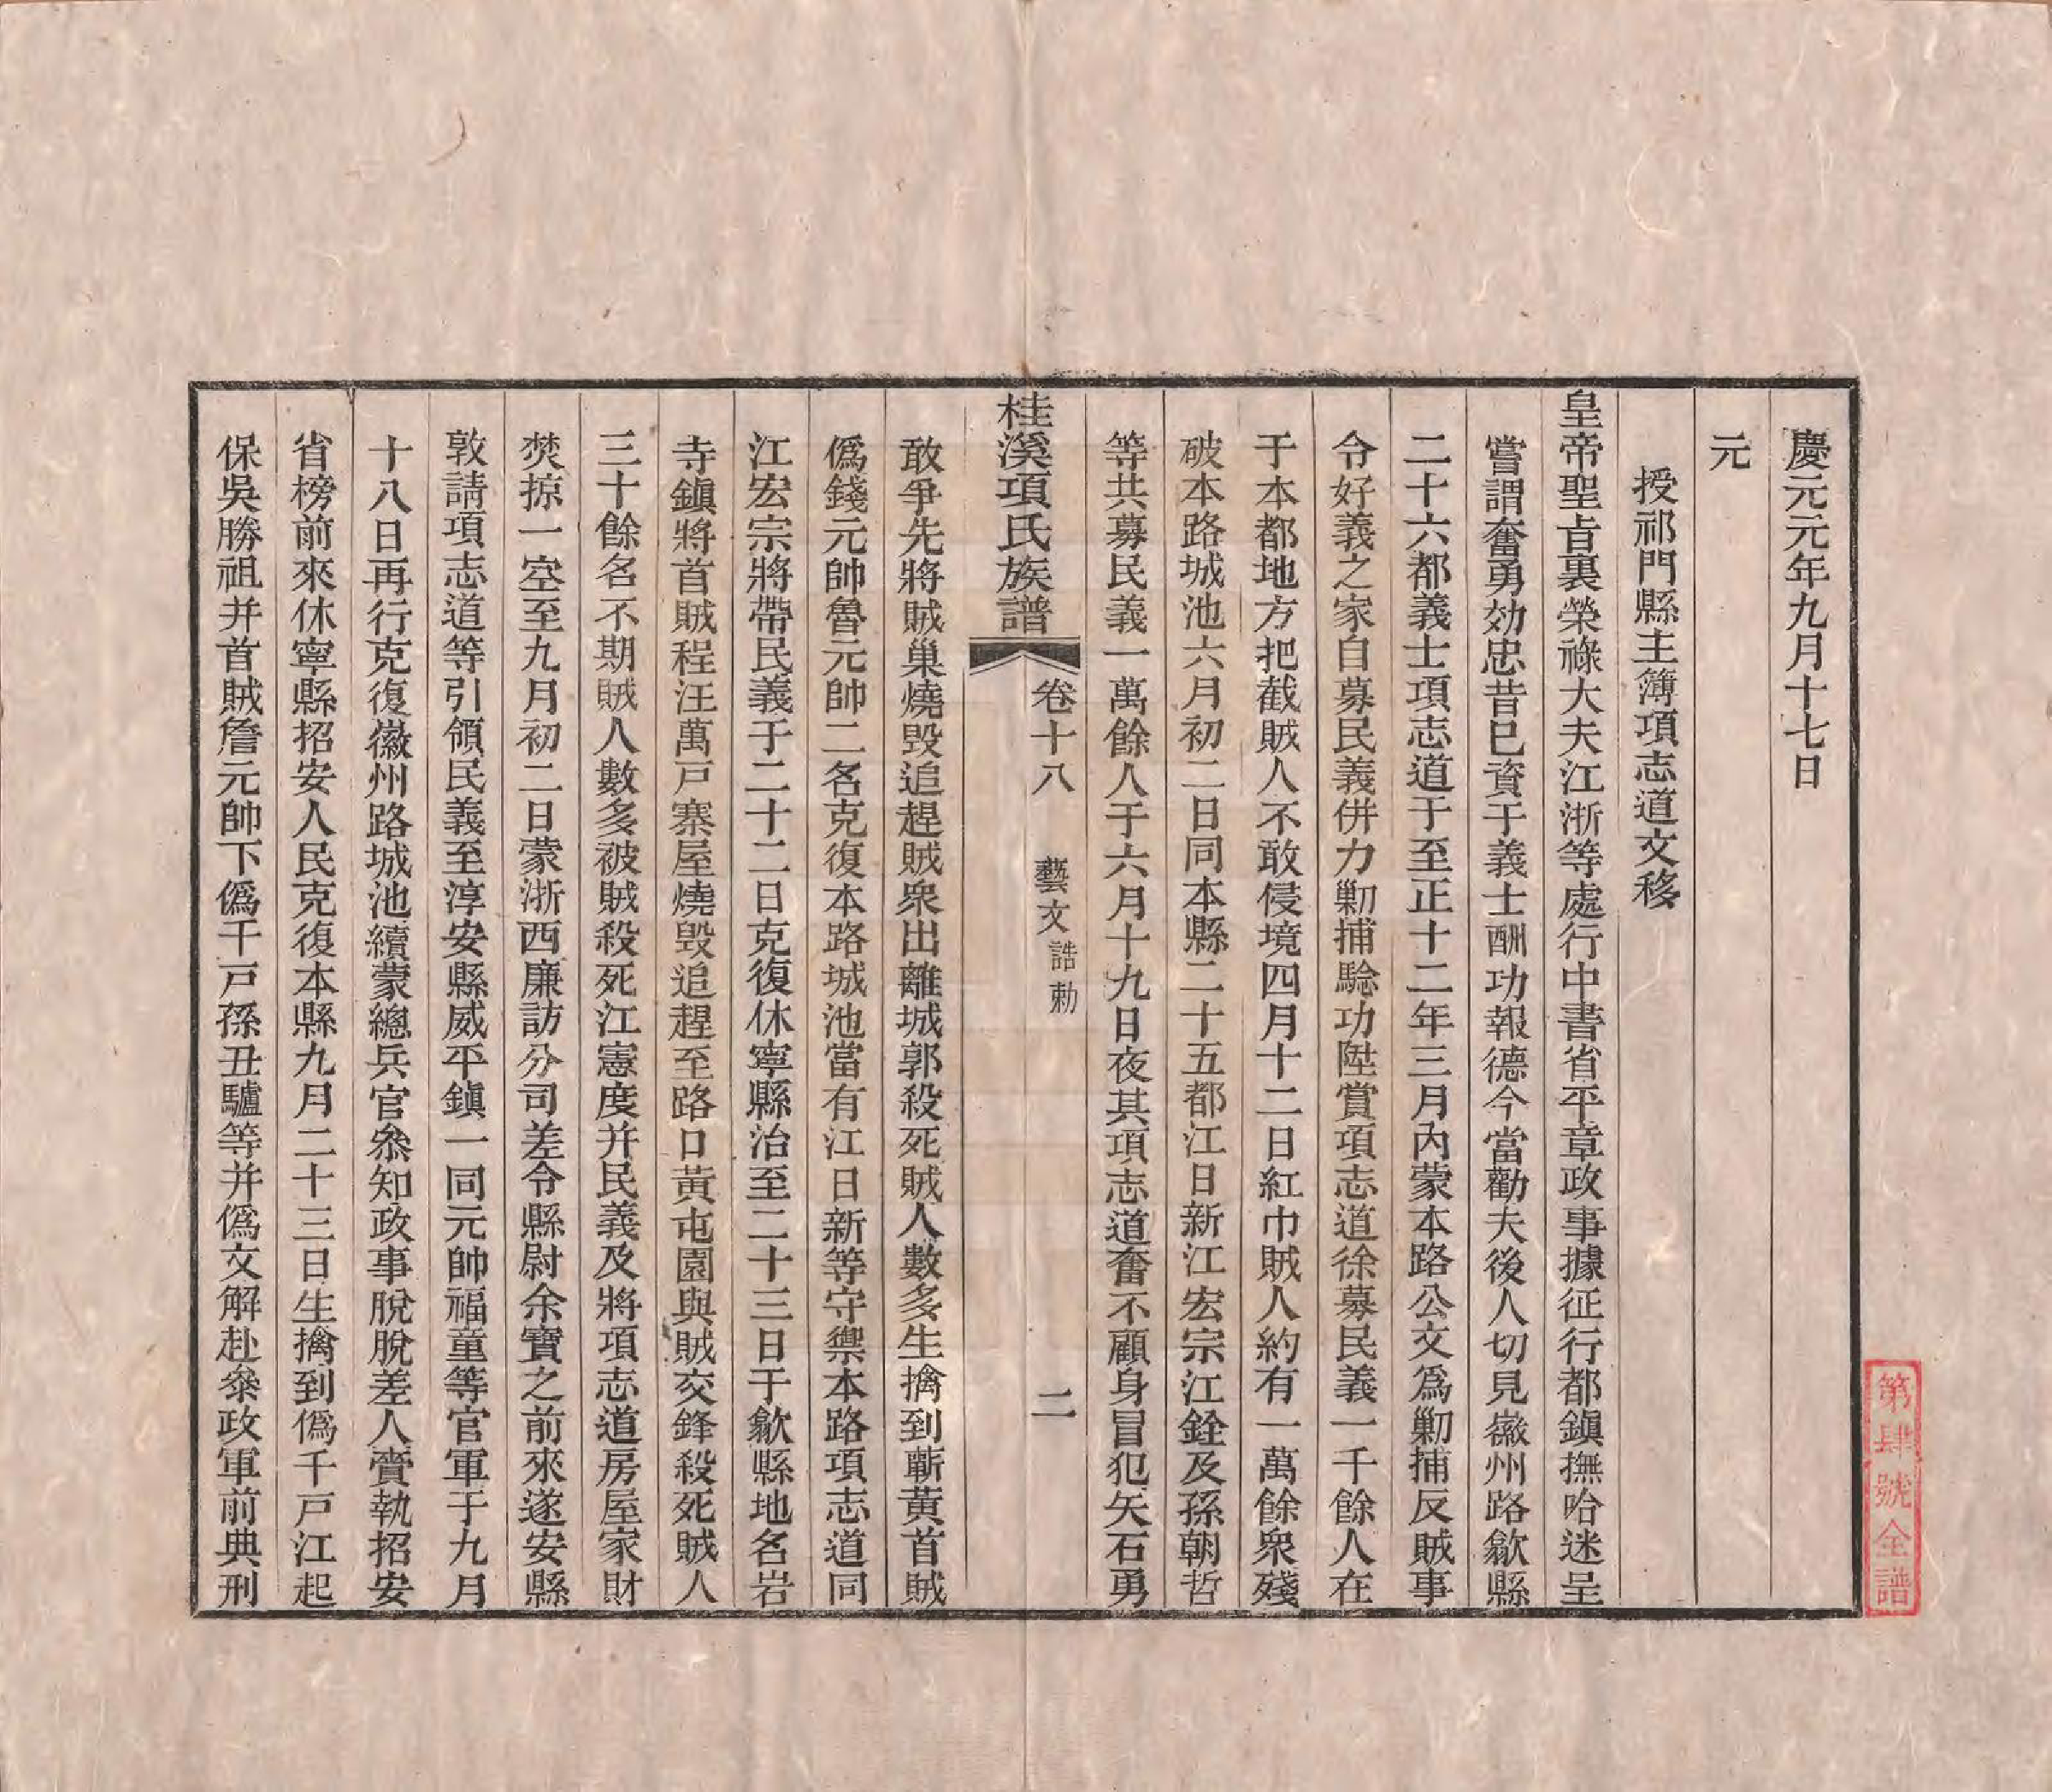 慶元元年九月十七日
元
授祁門縣主簿項志道文移
皇帝聖旨裏榮祿大夫江浙等處行中書省平章政事據征行都鎭撫哈迷呈
嘗謂奮勇効忠昔已資于義士酬功報德今當勸夫後人切見徽州路歙縣
二十六都義士項志道于至正十二年三月內蒙本路公文爲剿捕反賊事
令好義之家自募民義併力剿捕驗功陞賞項志道徐募民義一千餘人在
于本都地方把截賊人不敢侵境四月十二日紅巾賊人約有一萬餘衆殘
破本路城池六月初二日同本縣二十五都江日新江宏宗江銓及孫朝哲
等共募民義一萬餘人于六月十九日夜其項志道奮不顧身冒犯矢石勇
桂溪項氏族譜 卷十八 藝文 誥勅 二
敢爭先將賊巢燒毀追趕賊衆出離城郭殺死賊人數多生擒到蘄黃首賊
僞錢元帥魯元帥二名克復本路城池當有江日新等守禦本路項志道同
江宏宗將帶民義于二十二日克復休寧縣治至二十三日于歙縣地名岩
寺鎭將首賊程汪萬戸寨屋燒毀追趕至路口黃屯園與賊交鋒殺死賊人
三十餘名不期賊人數多被賊殺死江憲度并民義及將項志道房屋家財
焚掠一空至九月初二日蒙浙西廉訪分司差令縣尉余寶之前來遂安縣
敦請項志道等引領民義至淳安縣威平鎭一同元帥福童等官軍于九月
十八日再行克復徽州路城池續蒙總兵官叅知政事脫脫差人賫執招安
省榜前來休寧縣招安人民克復本縣九月二十三日生擒到僞千戸江起
保吳勝祖并首賊詹元帥下僞千戸孫丑驢等并僞文解赴叅政軍前典刑
第肆號全譜